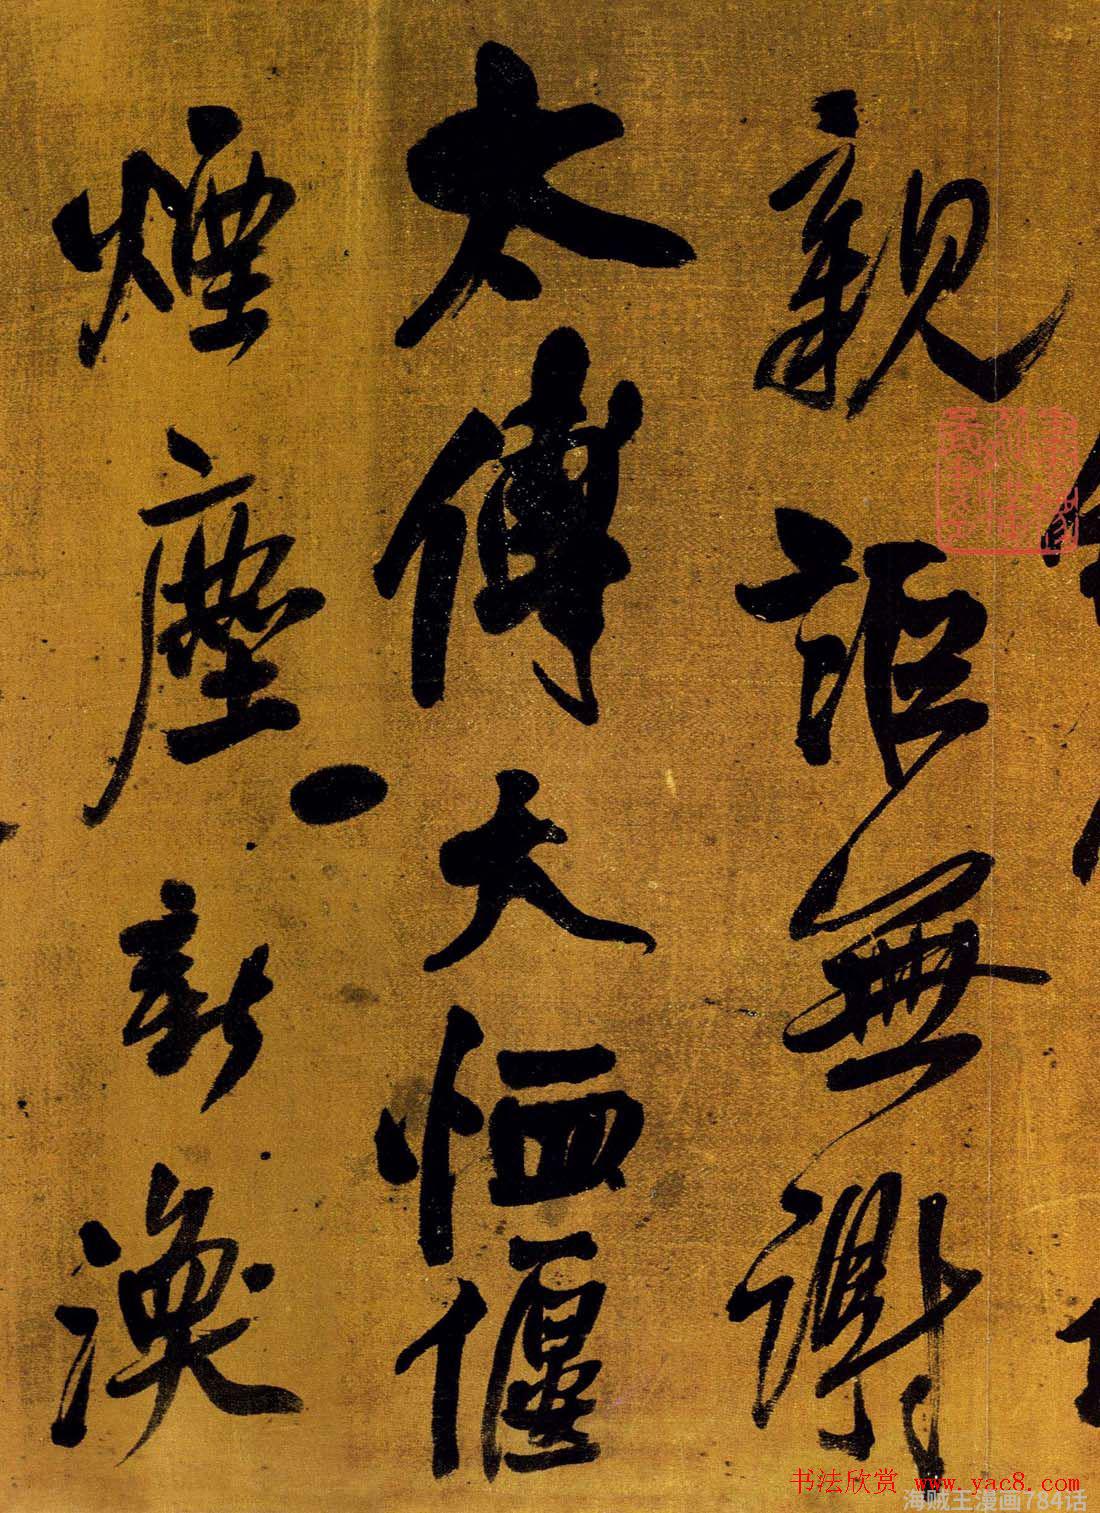 親詎無謝
太傅大恤偃
煙塵新渙
书法欣赏 www.yac8.com
海贼王漫画784话